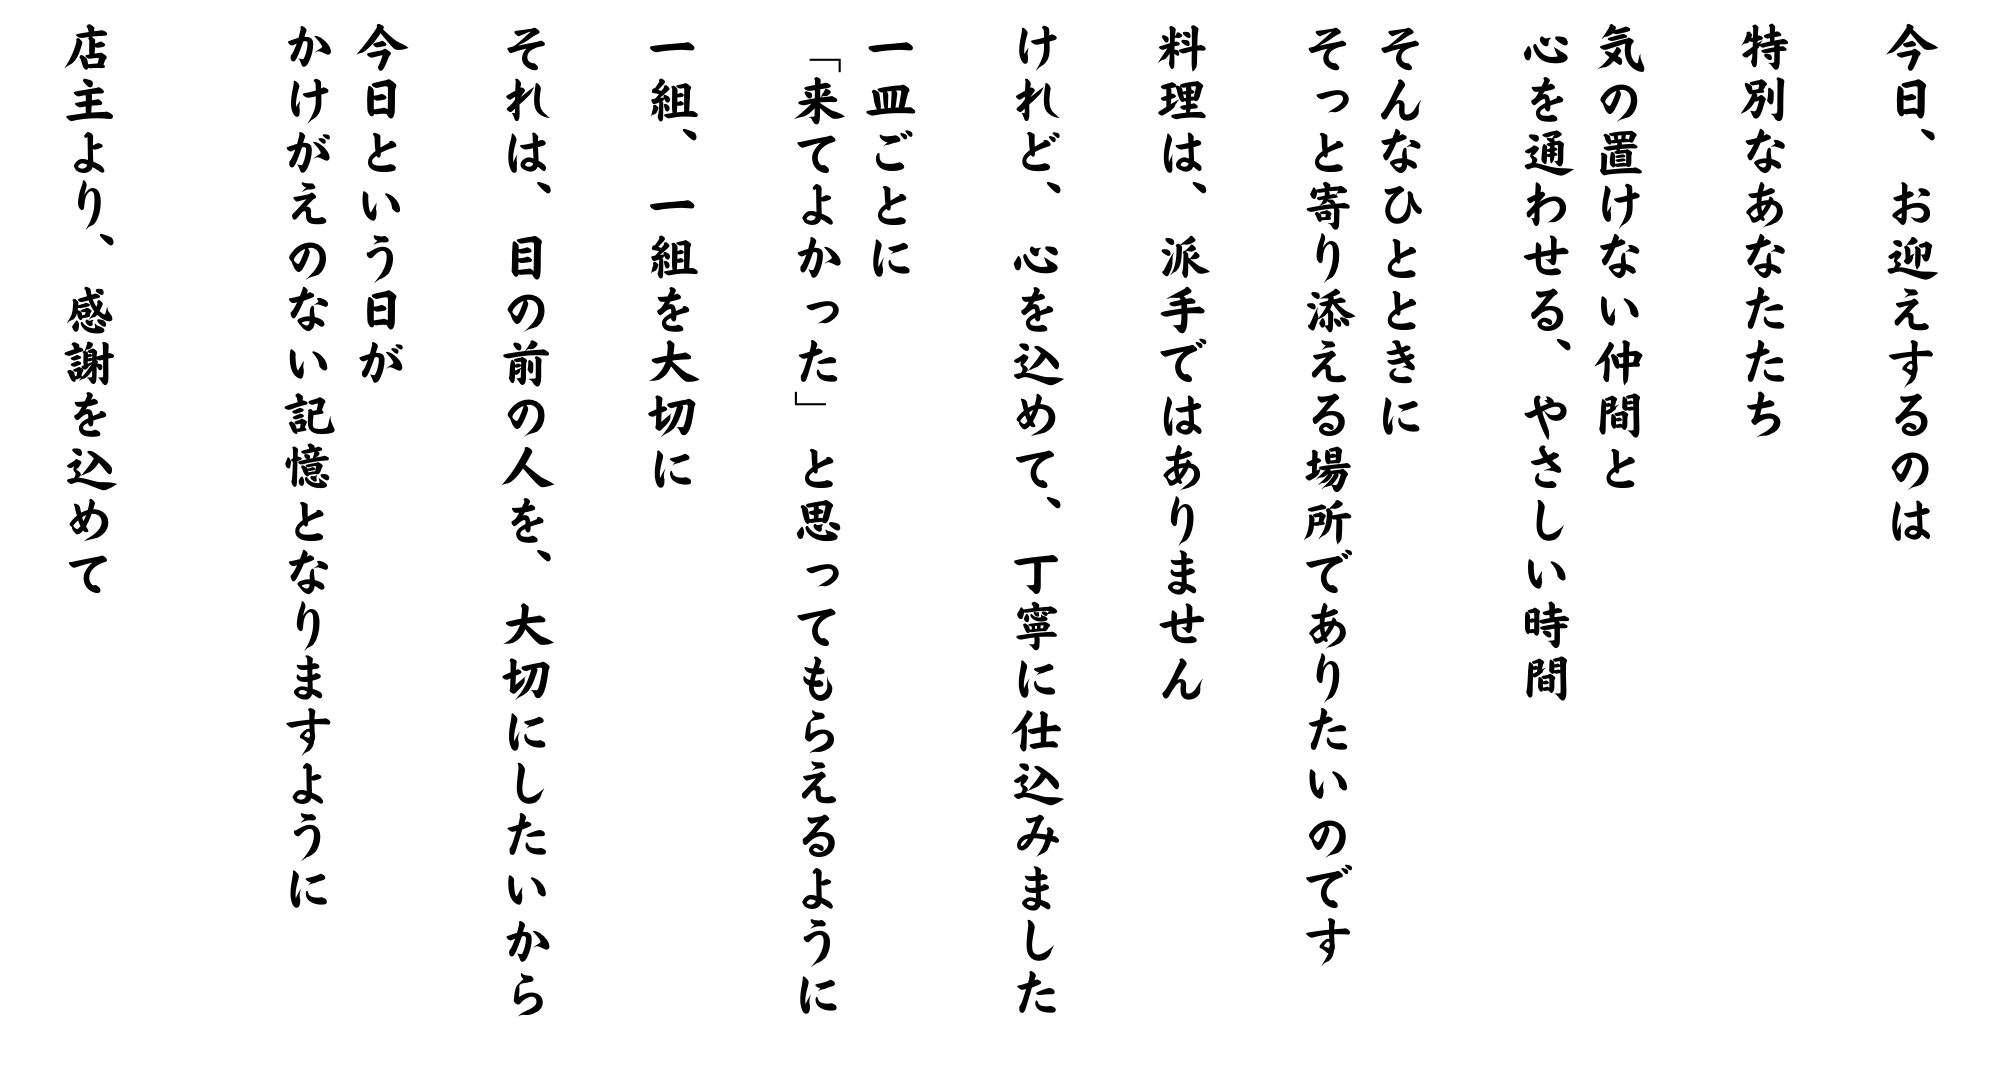 今日、お迎えするのは
特別なあなたたち
気の置けない仲間と
心を通わせる、やさしい時間
そんなひとときに
そっと寄り添える場所でありたいのです
料理は、派手ではありません
けれど、心を込めて、丁寧に仕込みました
一皿ごとに
「来てよかった」と思ってもらえるように
一組、一組を大切に
それは、目の前の人を、大切にしたいから
今日という日が
かけがえのない記憶となりますように
店主より、感謝を込めて